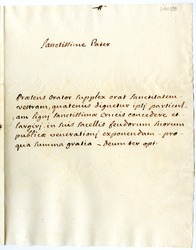 Sanctissime Pater
Orator supplex orat Sanctitatem
vestram, quatenus dignetur ipsi particul.
am ligni sanctissimæ crucis concedere et
largiri, in suis sacellis feudorum suorum
publicæ venerationi exponendam - pro
qua summa gratia - Deum etc opt.